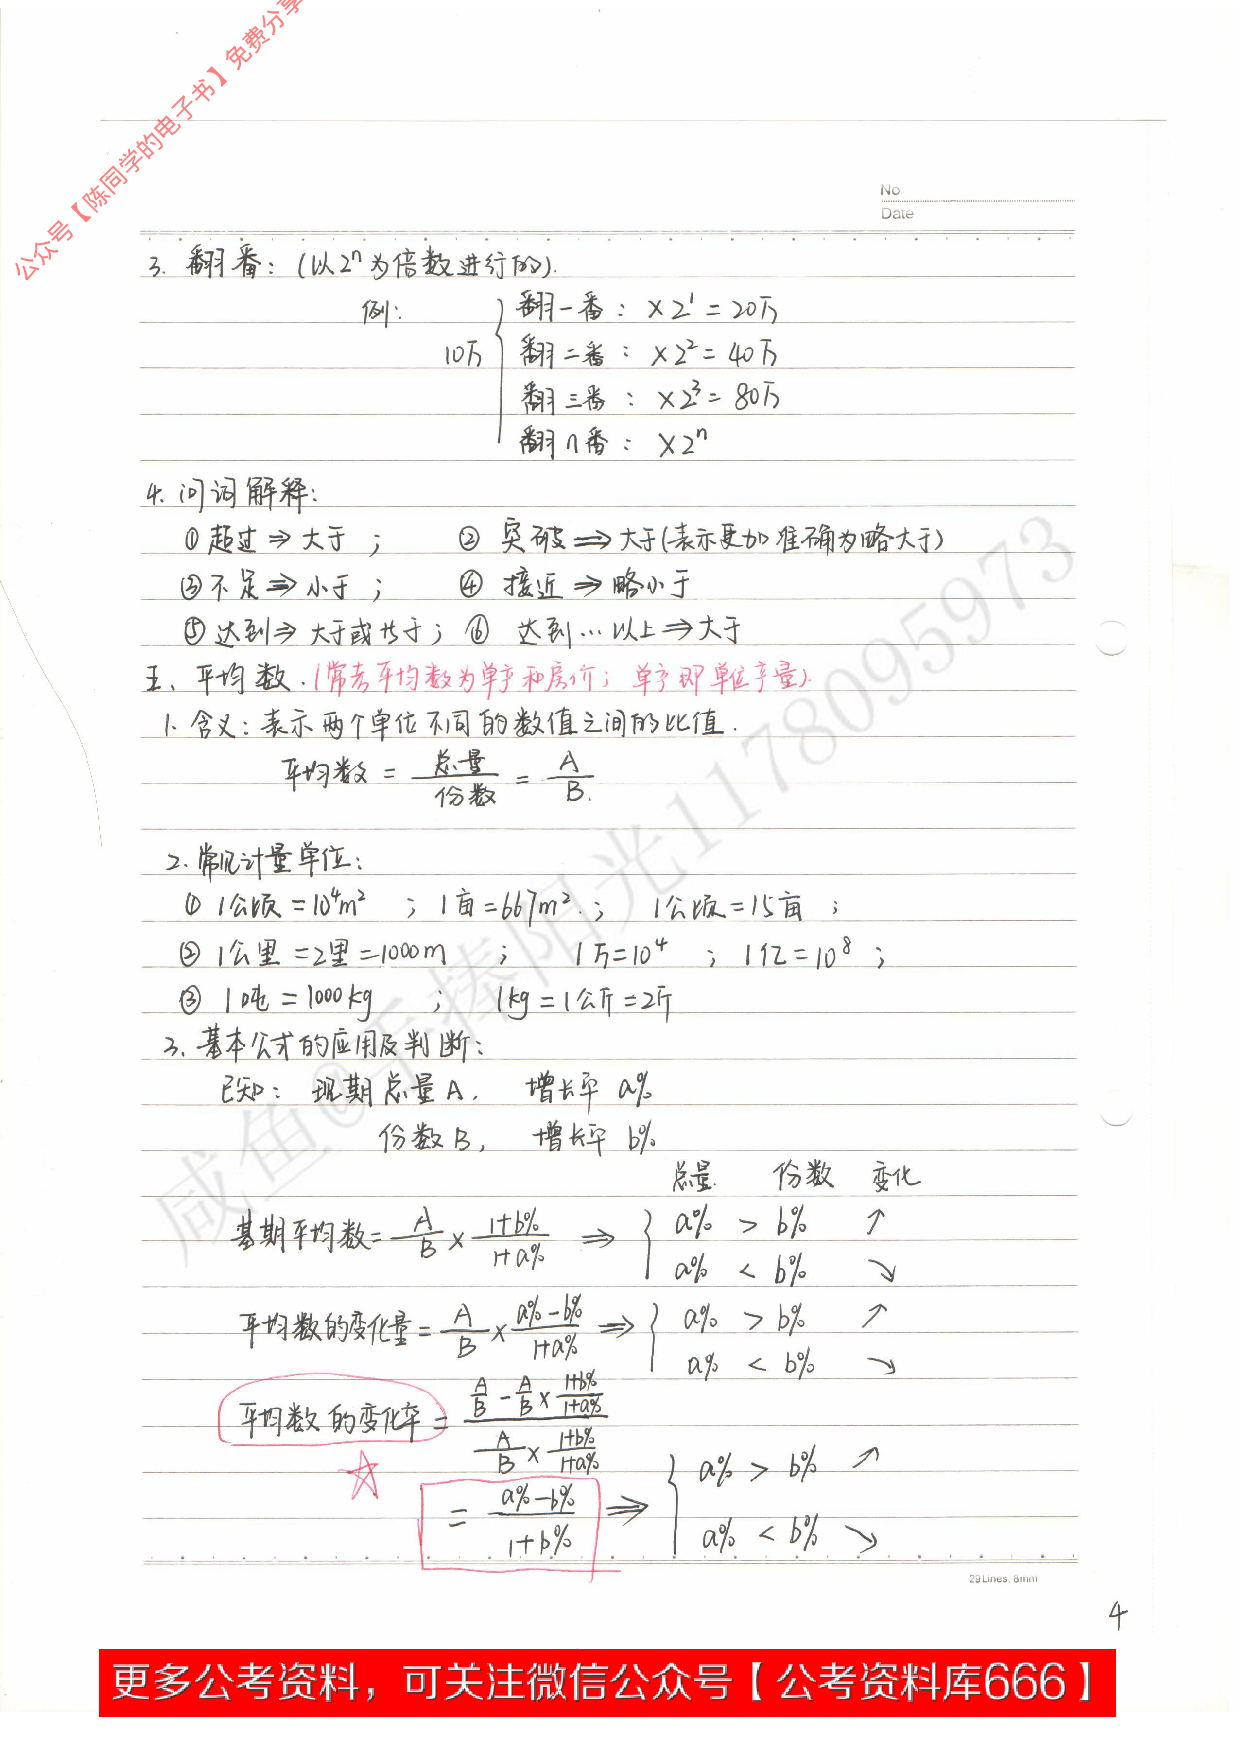 公众号【陈同学的电子书】免费分享
No
Date
3. 翻番：(以2ⁿ为倍数进行的).
例：
翻一番： ×2¹ = 20万
10万
翻二番： ×2² = 40万
翻三番： ×2³ = 80万
翻n番： ×2ⁿ
4. 问词解释：
① 超过 ⇒ 大于 ； ② 突破 ⇒ 大于(表示更加准确为略大于)
③ 不足 ⇒ 小于 ； ④ 接近 ⇒ 略小于
⑤ 达到 ⇒ 大于或等于； ⑥ 达到…以上 ⇒ 大于
五、平均数.(常考平均数为单产和房价；单产即单位产量).
1. 含义：表示两个单位不同的数值之间的比值.
平均数 = 总量/份数 = A/B.
2. 常见计量单位：
① 1公顷 = 10⁴m² ； 1亩 = 667m². ； 1公顷 = 15亩 ；
② 1公里 = 2里 = 1000m ； 1万 = 10⁴ ； 1亿 = 10⁸ ；
③ 1吨 = 1000kg ； 1kg = 1公斤 = 2斤
3. 基本公式的应用及判断：
已知： 现期总量A, 增长率 a%
份数B, 增长率 b%
总量 份数 变化
基期平均数 = A/B × (1+b%)/(1+a%) ⇒ { a% > b% ↗
a% < b% ↘
平均数的变化量 = A/B × (a%-b%)/(1+a%) ⇒ { a% > b% ↗
a% < b% ↘
平均数的变化率 = (A/B - A/B × (1+b%)/(1+a%)) / (A/B × (1+b%)/(1+a%))
= (a%-b%)/(1+b%) ⇒ { a% > b% ↗
a% < b% ↘
29 Lines, 8mm
4
咸鱼@手捧阳光1178095973
更多公考资料，可关注微信公众号【公考资料库666】